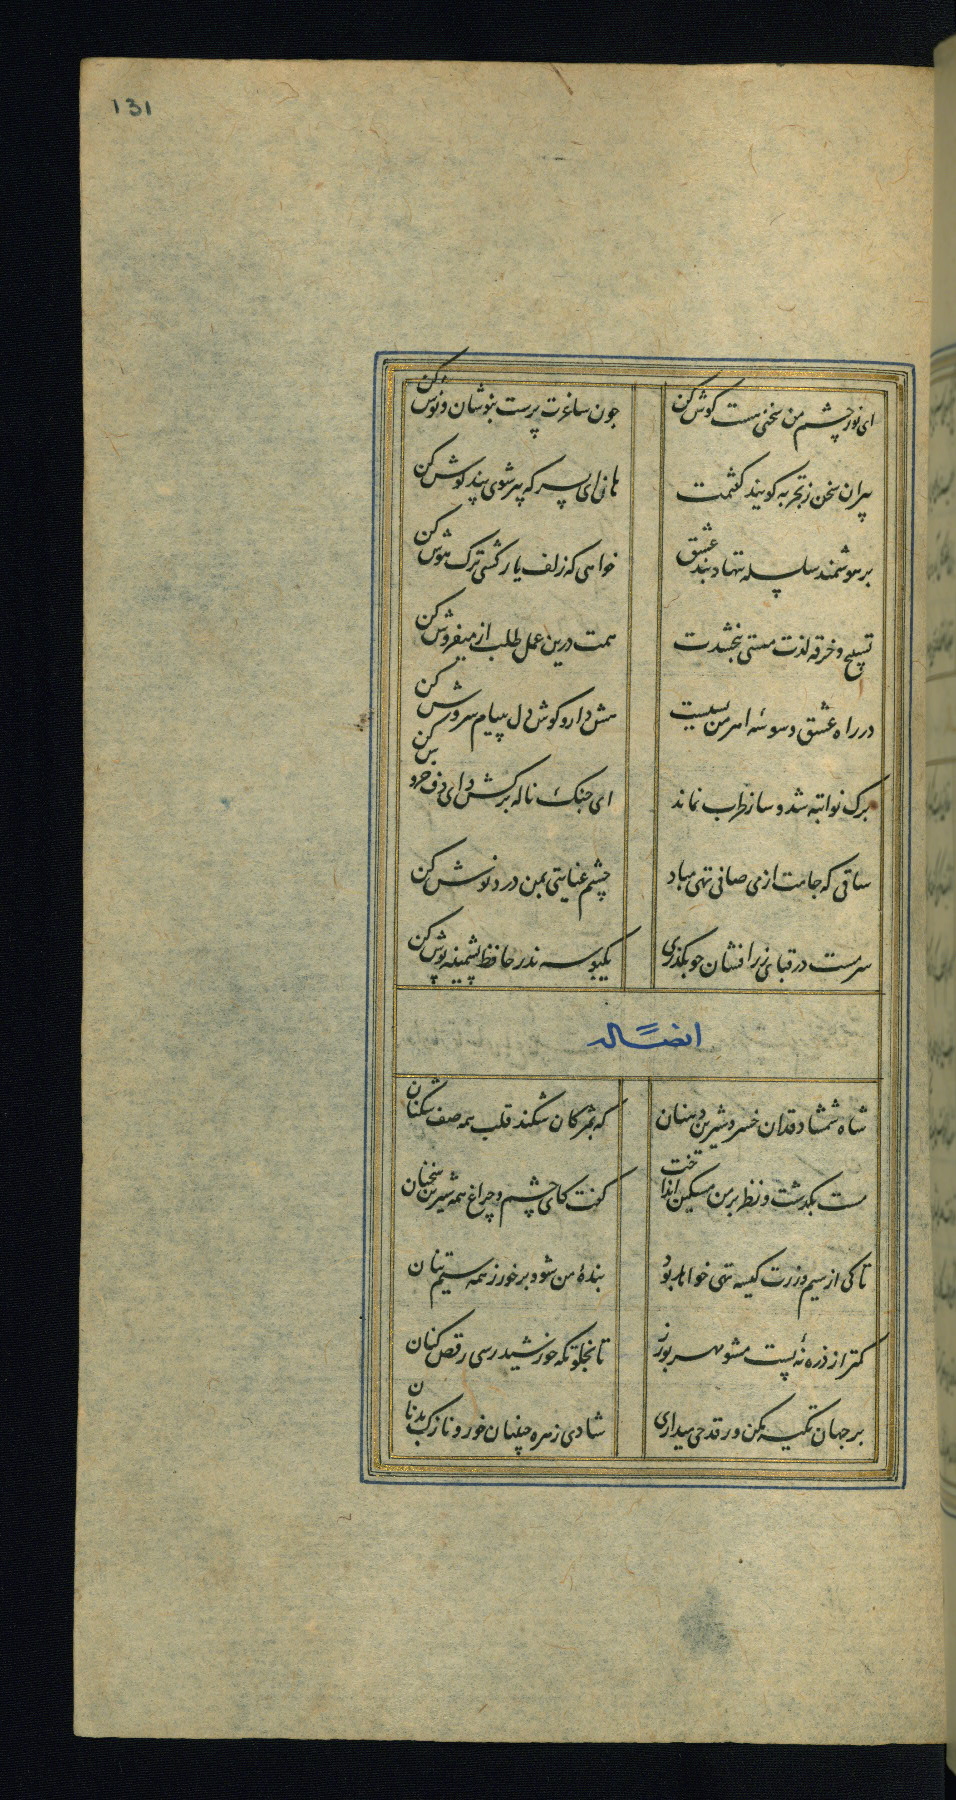 131
ای نور چشم من سخنی هست کوش کن	جون ساغرت پرست بنوشان و نوش کن
پیران سخن ز تجربه کویند کفتمت	هانی ای پسر که پیر شوی پند کوش کن
بر هوشمند سلسله ننهاد بند عشق	خواهی که زلف یار کشی ترک هوش کن
تسبیح و خرقه لذت مستی نبخشدت	همت درین عمل طلب از میفروش کن
در راه عشق وسوسهٔ اهرمن بسیست	هش دار و کوش دل بپیام سروش کن
برک نوا تبه شد و ساز طرب نماند	ای چنک ناله برکش و ای دف خروش کن
ساقی که جامت از می صافی تهی مباد	چشم عنایتی بمن درد نوش کن
سرمست در قبای زرافشان جو بکذری	یکبوسه نذر حافظ پشمینه پوش کن
ایضاً له
شاه شمشاد قدان خسرو شیرین دهنان	که بمژکان شکند قلب همه صف شکنان
مست بکذشت و نظر بر من مسکین انداخت	کفت کای چشم و چراغ همه شیرین سخنان
تا کی از سیم و زرت کیسه تهی خواهد بود	بندهٔ من شو و بر خور ز همه سیم تنان
کمتر از ذره نهٔ پست مشو مهر بورز	تا بخلوتکه خورشید رسی رقص کنان
بر جهان تکیه مکن ور قدحی می داری	شادی زهره جبینان خور و نازک بدنان